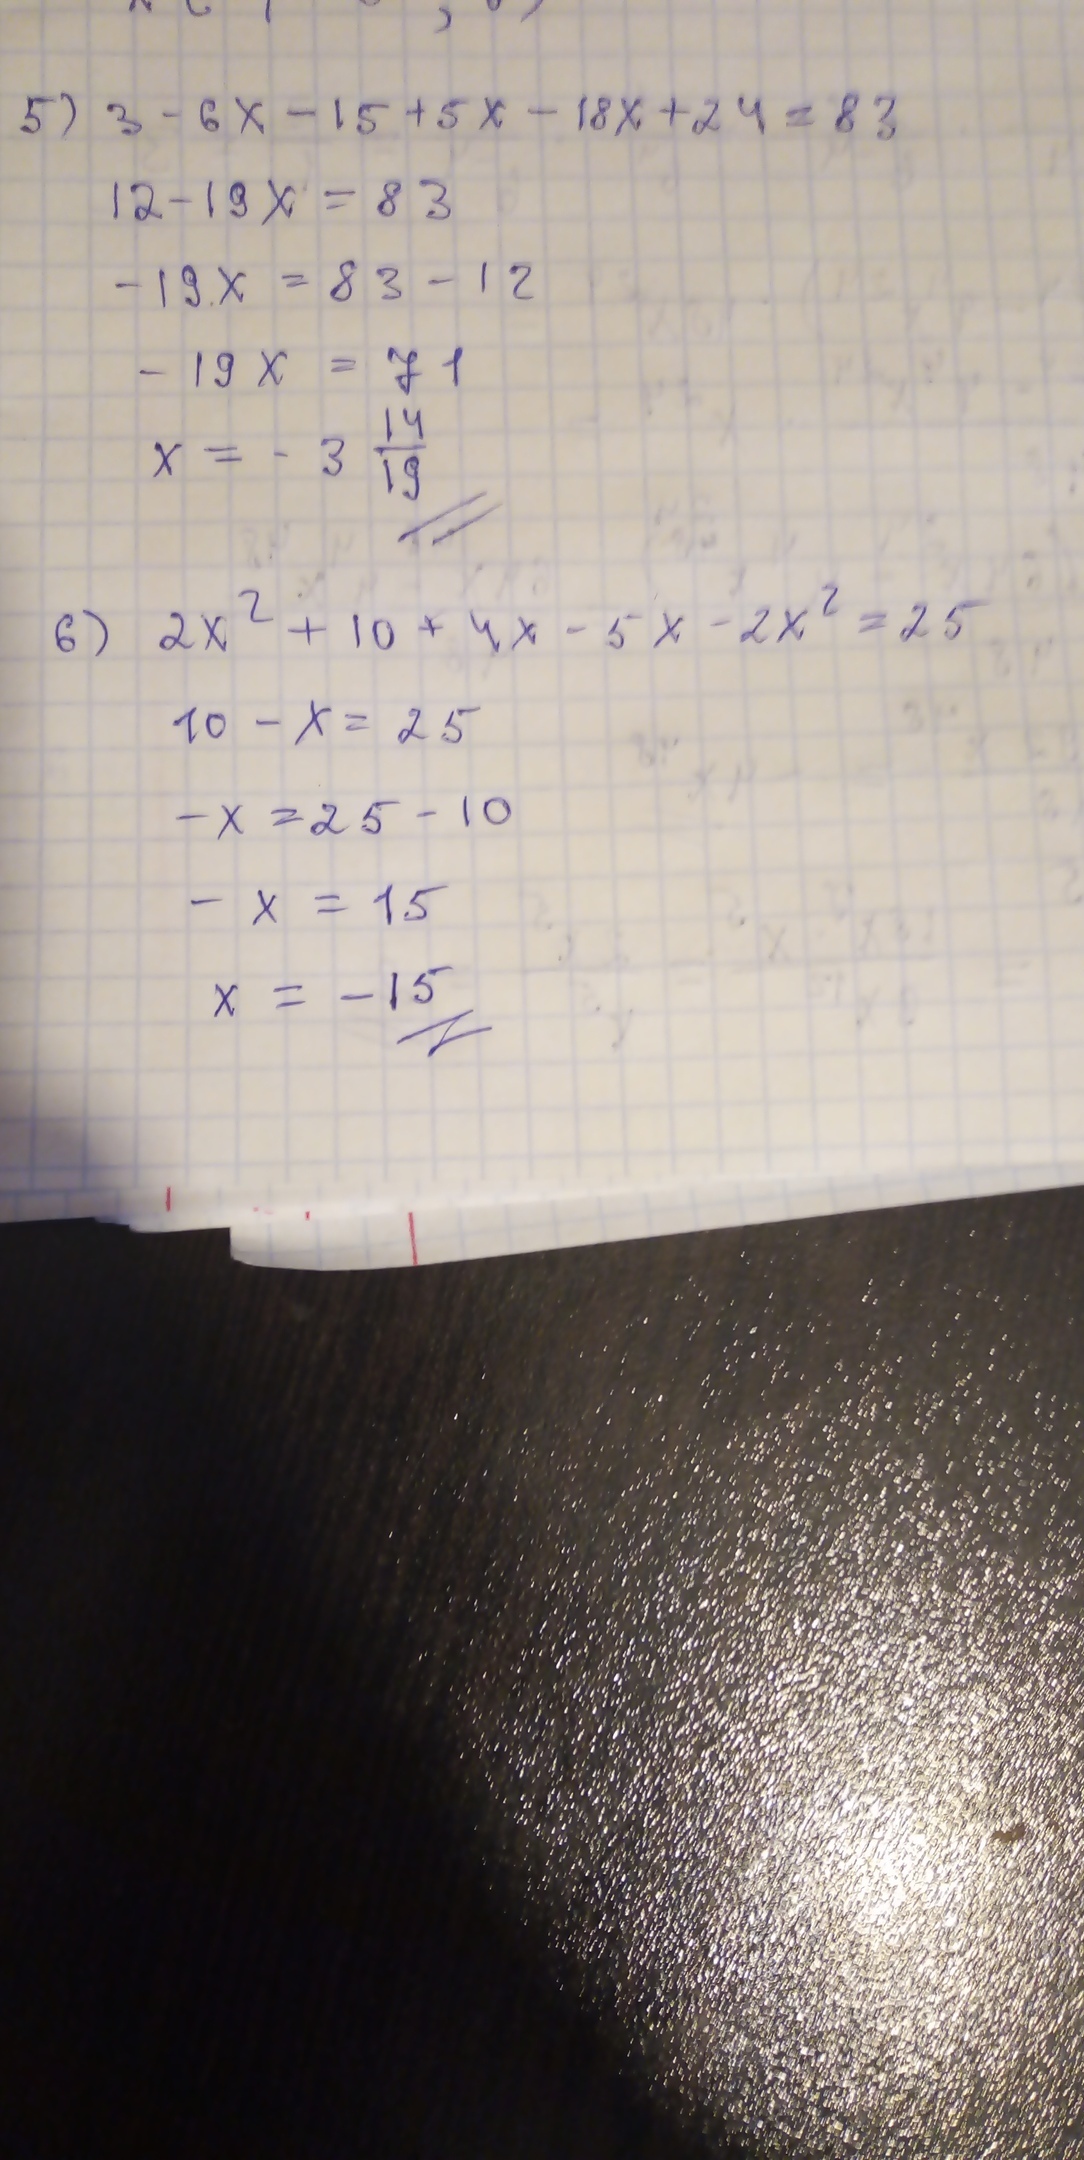 5) 3 - 6x - 15 + 5x - 18x + 24 = 83
12 - 19x = 83
- 19x = 83 - 12
- 19x = 71
x = - 3 14/19
6) 2x² + 10 + 4x - 5x - 2x² = 25
10 - x = 25
- x = 25 - 10
- x = 15
x = - 15